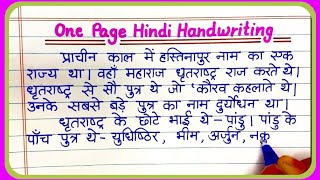 One Page Hindi Handwriting
प्राचीन काल में हस्तिनापुर नाम का एक
राज्य था। वहाँ महाराज धृतराष्ट्र राज करते थे।
धृतराष्ट्र से सौ पुत्र थे जो 'कौरव कहलाते थे।
उनके सबसे बड़े पुत्र का नाम दुर्योधन था।
धृतराष्ट्र के छोटे भाई थे- पांडु। पांडु के
पाँच पुत्र थे- युधिष्ठिर, भीम, अर्जुन, नकु